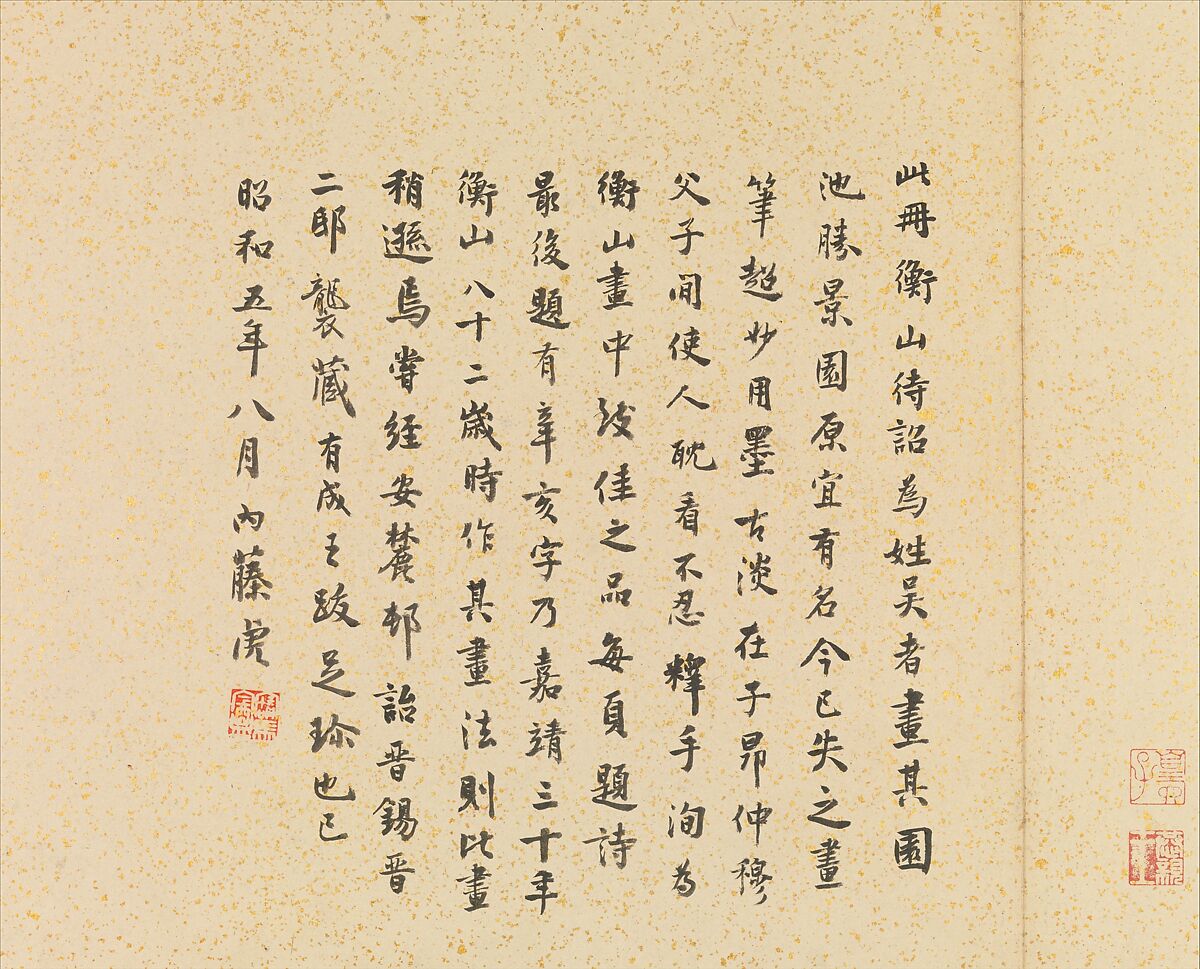 此冊衡山待詔為姓吴者畫其園
池勝景園原宜有名今已失之畫
筆超妙用墨古淡在子昂仲穆
父子間使人耽看不忍釋手洵為
衡山畫中致佳之品每頁題詩
最後題有辛亥字乃嘉靖三十年
衡山八十二歳時作其畫法則此畫
稍遜焉嘗經安麓邨詒晋錫晋
二邸襲蔵有成王跋足珎也已
昭和五年八月内藤虎